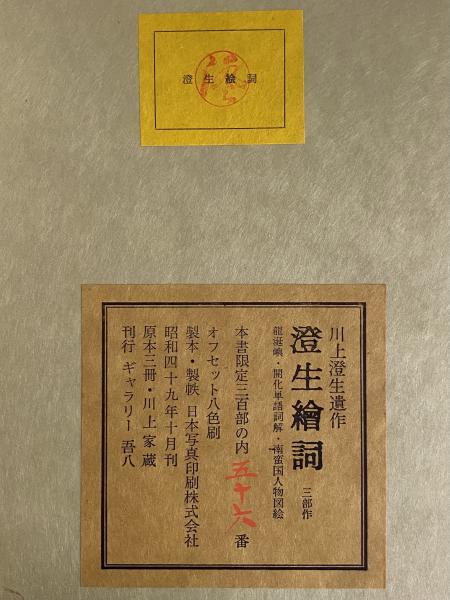 澄生絵詞
川上澄生遺作
澄生繪詞 三部作
龍涎嶼・開化単語詞解・南蛮国人物図絵
本書限定三百部の内 五十六 番
オフセット八色刷
製本・製帙 日本写真印刷株式会社
昭和四十九年十月刊
原本三冊・川上家蔵
刊行 ギャラリー 吾八